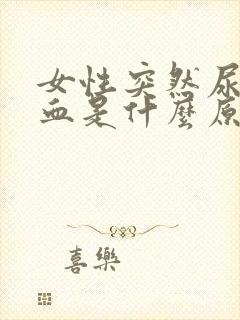 女性突然尿
血是什麼原
喜樂